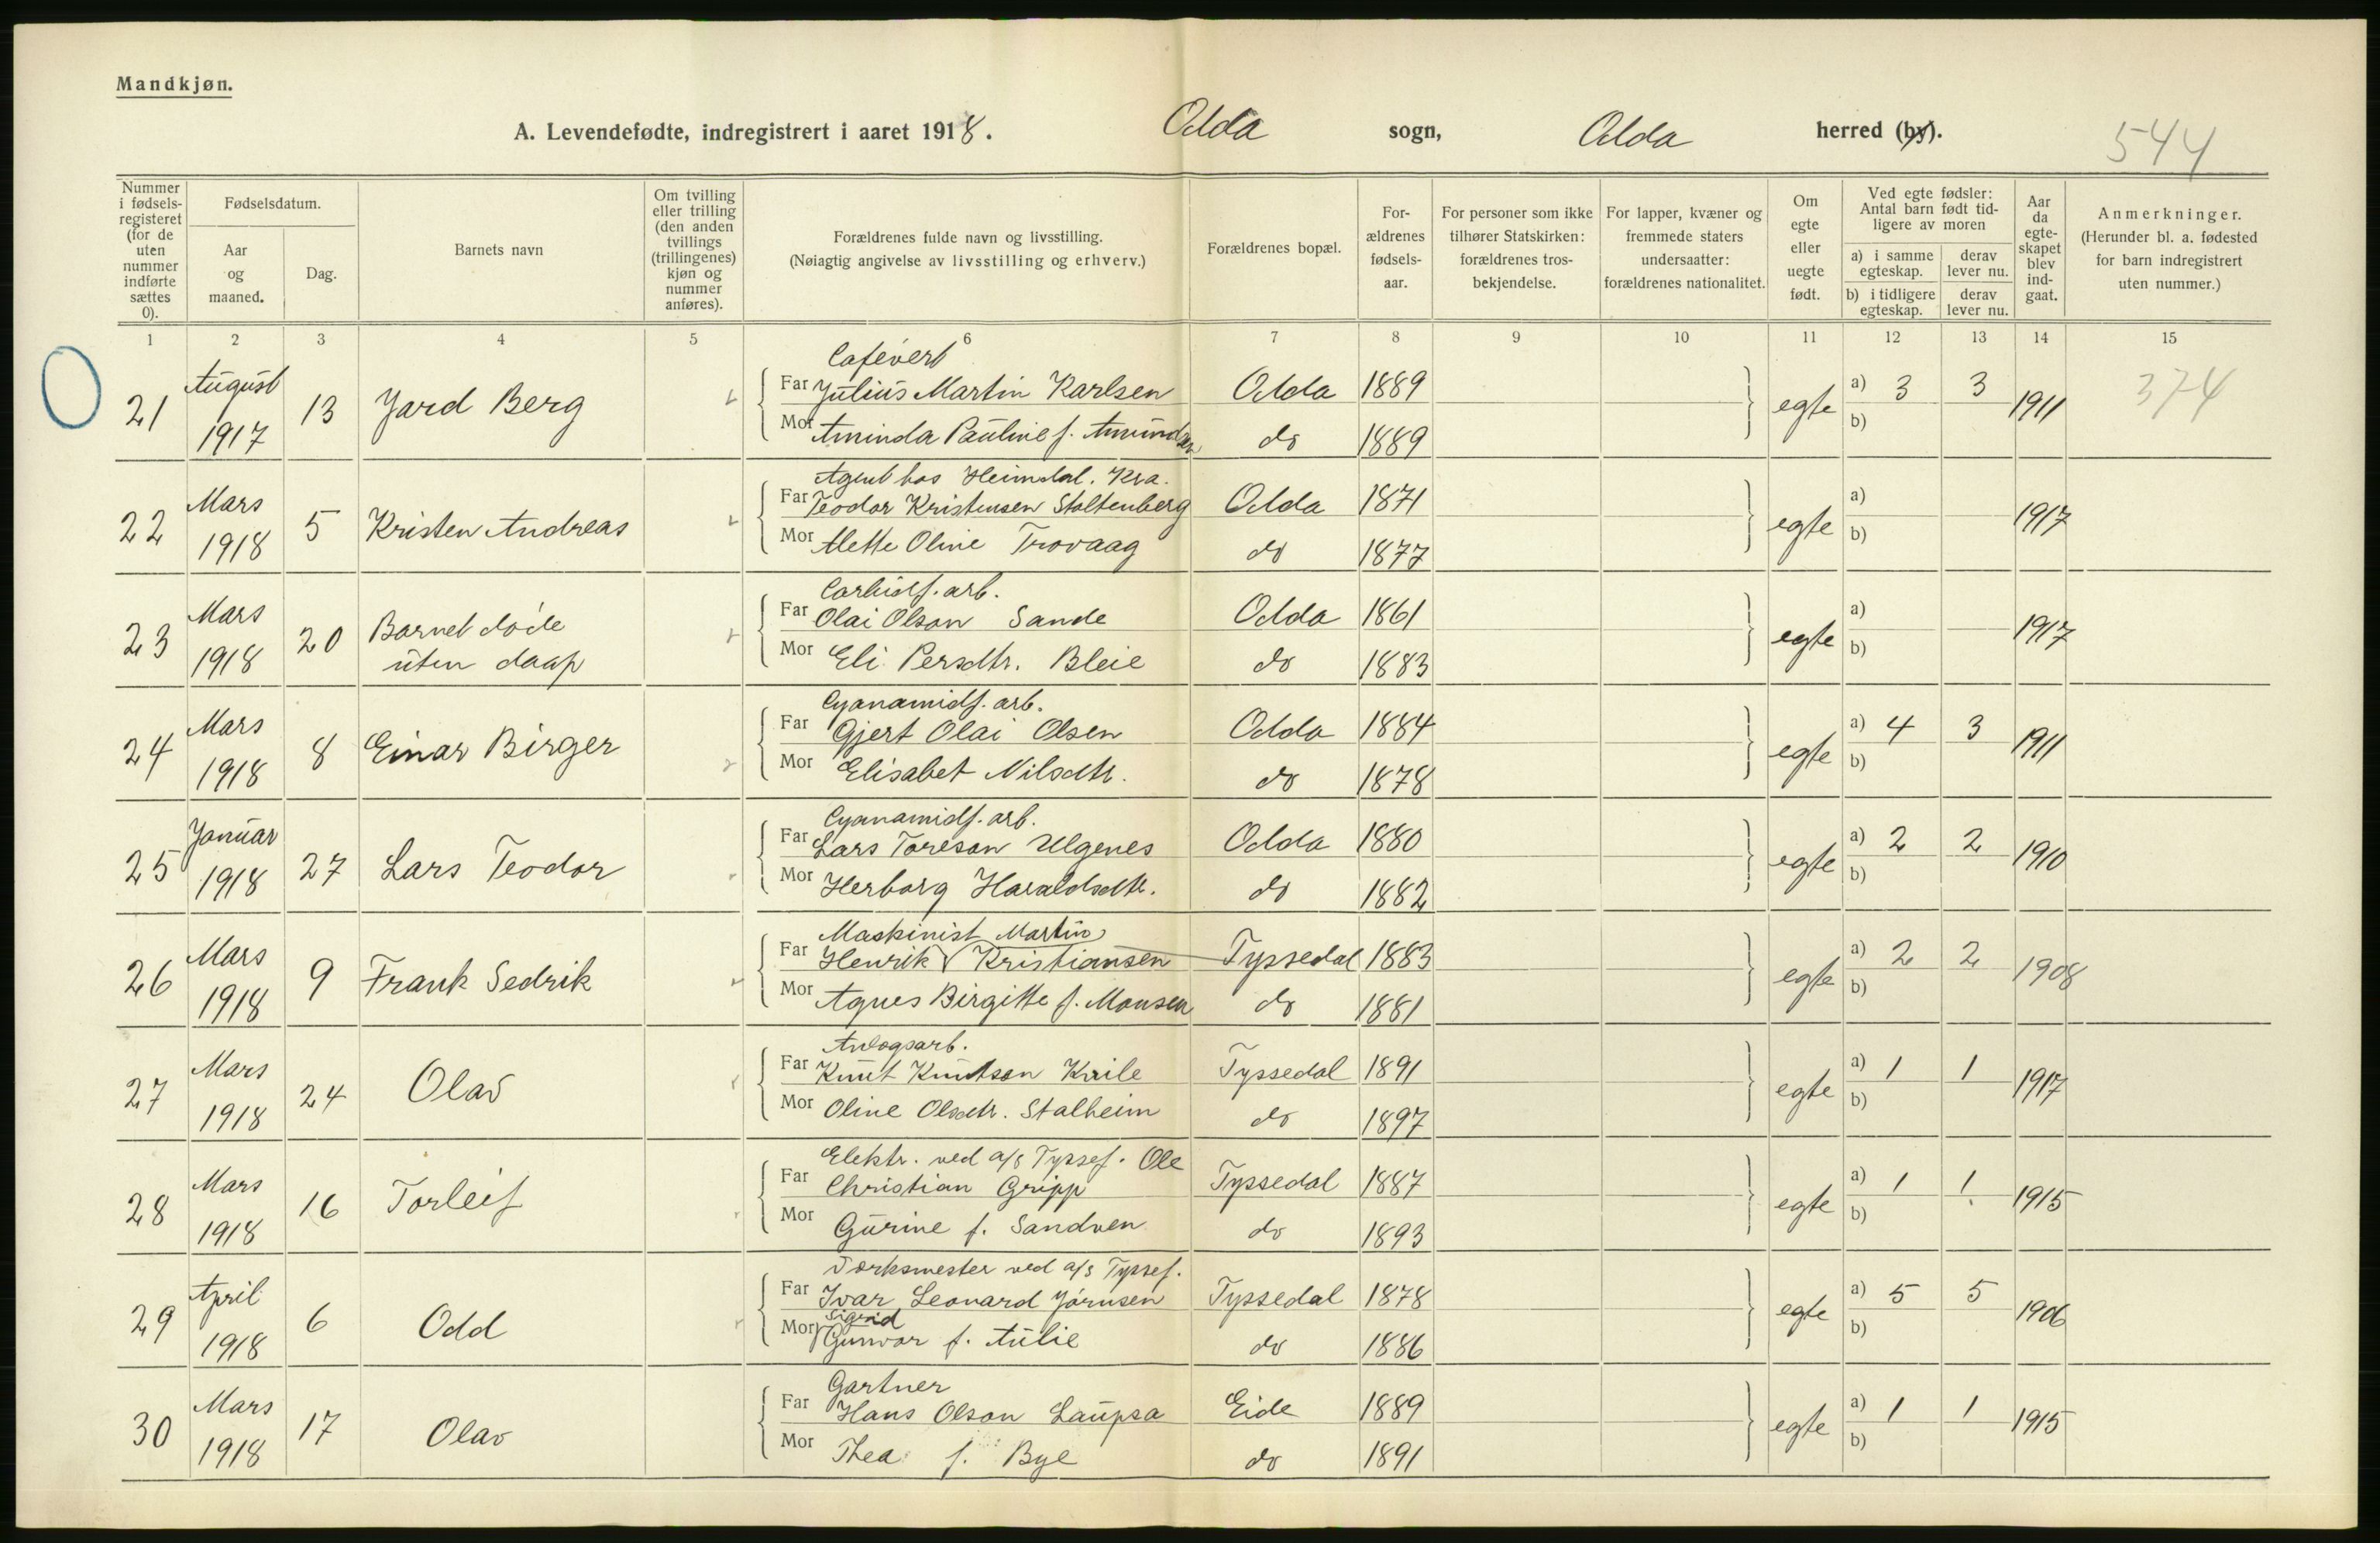 Mandkjøn.
A. Levendefødte, indregistrert i aaret 1918. Odda sogn, Odda herred (by).
544
Nummer i fødsels-registeret (for de uten nummer indførte sættes 0).
Fødselsdatum.
Aar og maaned.
Dag.
Barnets navn
Om tvilling eller trilling (den anden tvillings (trillingenes) kjøn og nummer anføres).
Forældrenes fulde navn og livsstilling.
(Nøiagtig angivelse av livsstilling og erhverv.)
Forældrenes bopæl.
For-ældrenes fødsels-aar.
For personer som ikke tilhører Statskirken: forældrenes tros-bekjendelse.
For lapper, kvæner og fremmede staters undersaatter: forældrenes nationalitet.
Om egte eller uegte født.
Ved egte fødsler: Antal barn født tid-ligere av moren
a) i samme egteskap. derav lever nu.
b) i tidligere egteskap. derav lever nu.
Aar da egte-skapet blev ind-gaat.
Anmerkninger.
(Herunder bl. a. fødested for barn indregistrert uten nummer.)
1 2 3 4 5 6 7 8 9 10 11 12 13 14 15
Cafévert
21 August 1917 13 Jard Berg Far Julius Martin Karlsen Odda 1889 egte a) 3 3 1911 374
Mor Aminda Pauline f. Amundsen do 1889 b)
Agent hos Heimdal. Kra.
22 Mars 1918 5 Kristen Andreas Far Teodor Kristensen Stoltenberg Odda 1871 egte a) 1917
Mor Mette Oline Trovaag do 1877 b)
Carbidf. arb.
23 Mars 1918 20 Barnet døde uten daap Far Olai Olson Sande Odda 1861 egte a) 1917
Mor Eli Persdtr. Bleie do 1883 b)
Cyanamidf. arb.
24 Mars 1918 8 Einar Birger Far Gjert Olai Olsen Odda 1884 egte a) 4 3 1911
Mor Elisabet Nilsdtr. do 1878 b)
Cyanamidf. arb.
25 Januar 1918 27 Lars Teodor Far Lars Toreson Ulgenes Odda 1880 egte a) 2 2 1910
Mor Herborg Haraldsdtr. do 1882 b)
Maskinist Martin
26 Mars 1918 9 Frank Sedrik Far Henrik Kristiansen Tyssedal 1883 egte a) 2 2 1908
Mor Agnes Birgitte f. Monsen do 1881 b)
Anlogsarb.
27 Mars 1918 24 Olav Far Knut Knutson Kvile Tyssedal 1891 egte a) 1 1 1917
Mor Oline Olsdtr. Stalheim do 1897 b)
Elektr. ved a/s Tyssef. Ole
28 Mars 1918 16 Torleif Far Christian Gripp Tyssedal 1887 egte a) 1 1 1915
Mor Gurine f. Sandven do 1893 b)
Verksmester ved a/s Tyssef.
29 April 1918 6 Odd Far Ivar Leonard Jørnsen Tyssedal 1878 egte a) 5 5 1906
Sigrid
Mor Gunvor f. Aulie do 1886 b)
Gartner
30 Mars 1918 17 Olav Far Hans Olson Laupsa Eide 1889 egte a) 1 1 1915
Mor Thea f. Bye do 1891 b)